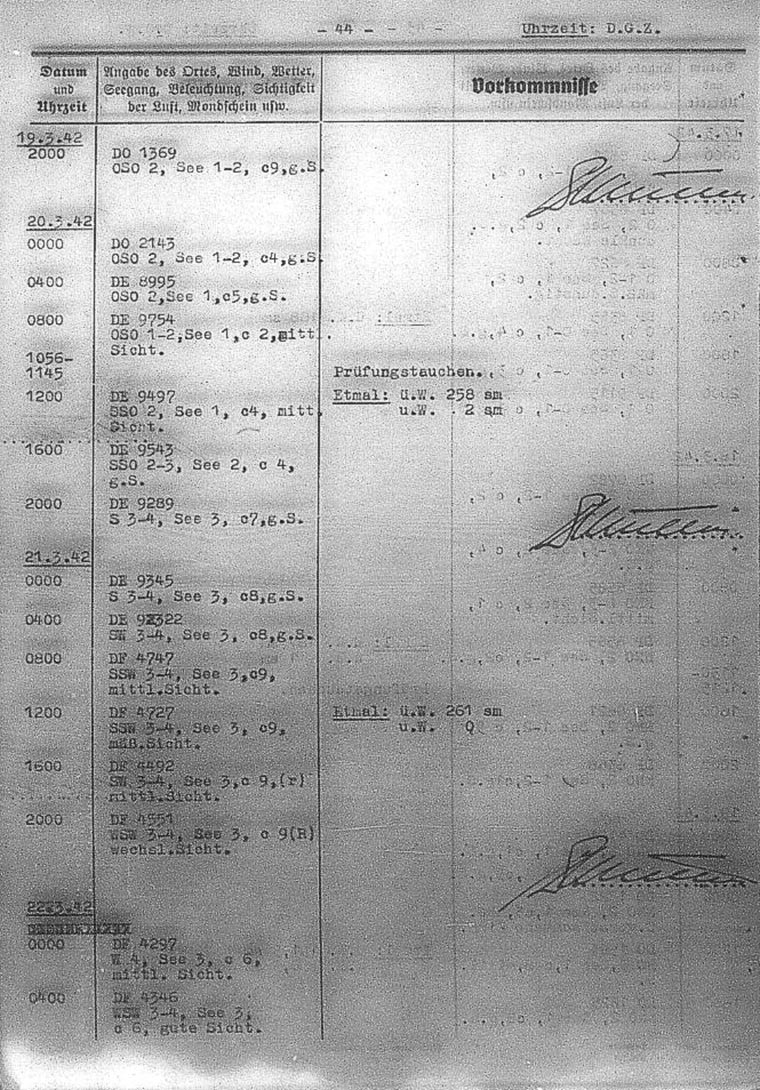 - 44 -
Uhrzeit: D.G.Z.
Datum
und
Uhrzeit
Angabe des Ortes, Wind, Wetter,
Seegang, Beleuchtung, Sichtigkeit
der Luft, Mondschein usw.
Vorkommnisse
19.3.42
2000 DO 1369
OSO 2, See 1-2, c9,g.S.
20.3.42
0000 DO 2143
OSO 2, See 1-2, c4,g.S.
0400 DE 8995
OSO 2,See 1,c5,g.S.
0800 DE 9754
OSO 1-2,See 1,c 2,mittl.
Sicht.
1056-
1145 Prüfungstauchen.
1200 DE 9497 Etmal: ü.W. 258 sm
SSO 2, See 1, c4, mitt u.W. 2 sm
Sicht.
1600 DE 9543
SSO 2-3, See 2, c 4,
g.S.
2000 DE 9289
S 3-4, See 3, c7,g.S.
21.3.42
0000 DE 9345
S 3-4, See 3, c8,g.S.
0400 DE 9322
SW 3-4, See 3, c8,g.S.
0800 DF 4747
SSW 3-4, See 3,c9,
mittl.Sicht.
1200 DF 4727 Etmal: ü.W. 261 sm
SSW 3-4, See 3, c9, u.W.
mäß.Sicht.
1600 DF 4492
SW 3-4, See 3,c 9,(r)
mittl.Sicht.
2000 DF 4551
WSW 3-4, See 3, c 9(R)
wechsl.Sicht.
22.3.42
0000 DF 4297
W 4, See 3, c 6,
mittl. Sicht.
0400 DF 4346
WSW 3-4, See 3,
c 6, gute Sicht.